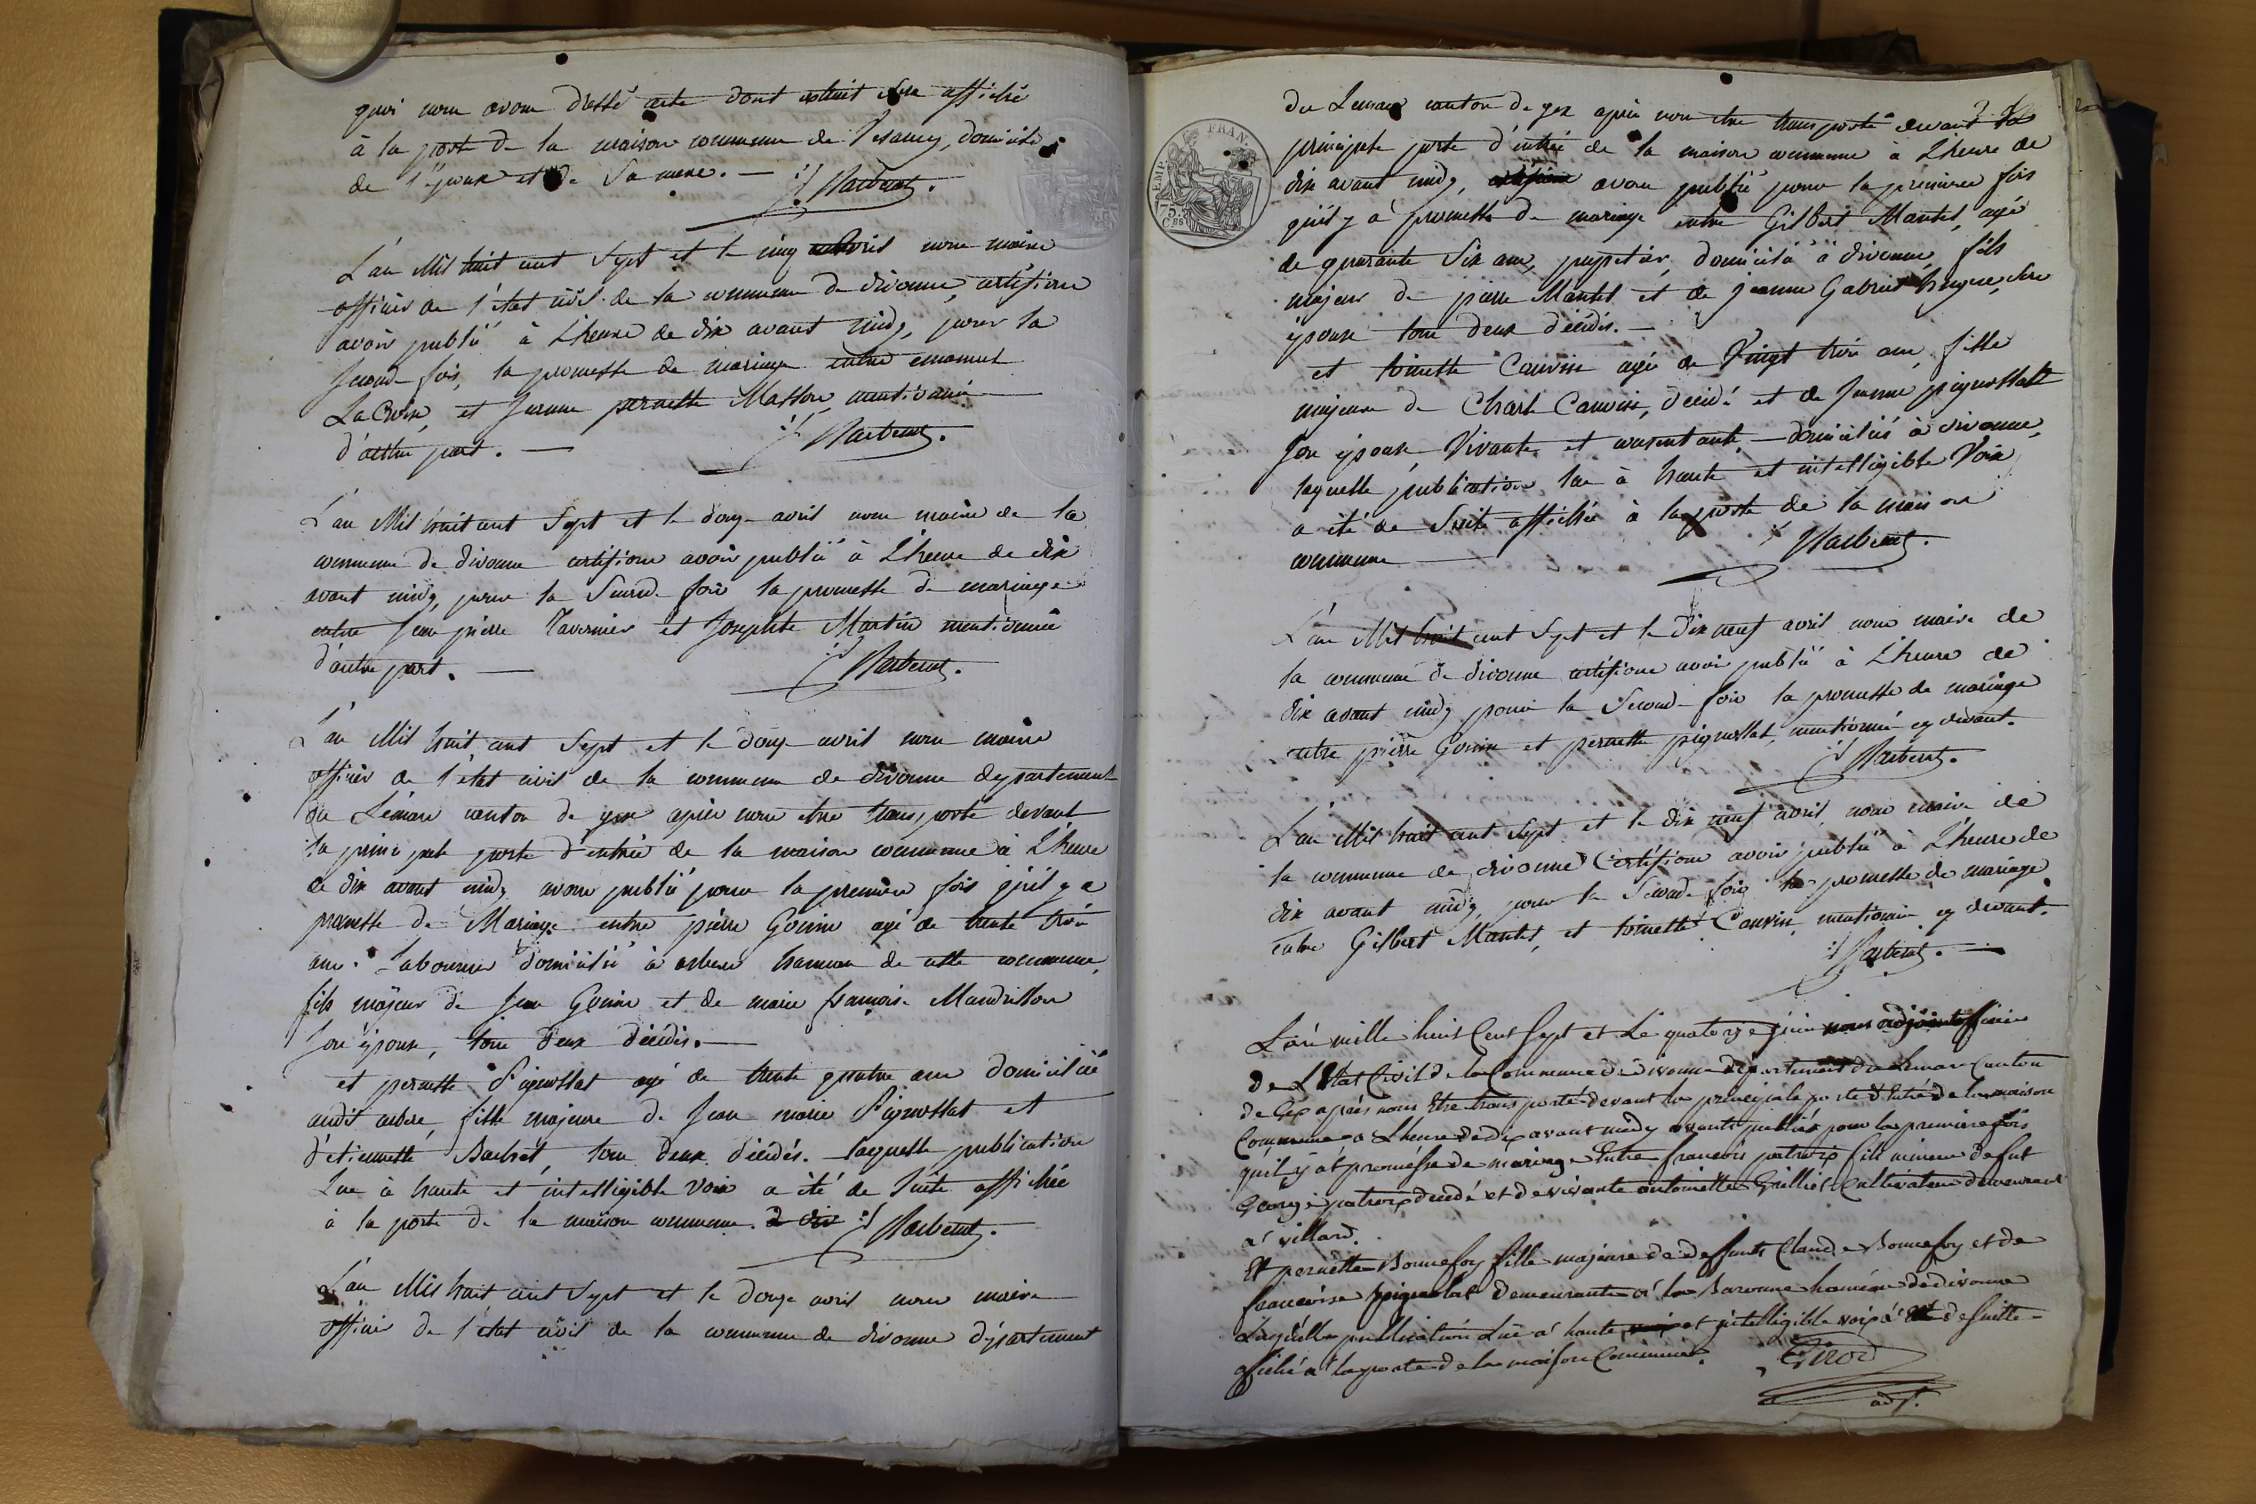 quoi nous avons dressé acte dont extrait sera affiché
à la porte de la maison commune de Vesancy, domicile
de l'époux et de sa mere. —
Harbecot.
L'an Mil huit cent Sept et le cinq avril nous maire
officier de l'état civil de la commune de divonne, certifions
avoir publié à L'heure de dix avant midy, pour la
second fois, la promesse de mariage entre
La Croix, et Jeanne pernette Masson, mentionné
d'autre part. —
L'an Mil huit cent Sept et le douze avril nous maire de la
commune de divonne certifions avoir publié à L'heure de dix
avant midy, pour la Second fois la promesse de mariage
entre Jean pierre Tavernier et Josephte Martin mentionnée
d'autre part. —
L'an Mil huit cent Sept et le douze avril nous maire
officier de l'état civil de la commune de divonne departement
du Léman canton de gex après nous etre transporté devant
la principale porte d'entrée de la maison commune à L'heure
de dix avant midy avons publié pour la premiere fois qu'il y a
promesse de Mariage entre pierre Gonin agé de trente trois
ans. Laboureur domicilié à arbere hameau de cette commune,
fils majeur de Jean Gonin et de marie françoise Mandrillon
Son épouse, tous deux décédés. —
et pernette Pignollat agé de trente quatre ans domiciliée
audit arbere, fille majeure de Jean marie Pignollat et
d'étiennette Bachet, tous deux décédés. — laquelle publication
Lue à haute et intelligible Voix a été de Suite affichée
à la porte de la maison commune.
L'an Mil huit cent Sept et le douze avril nous maire
officier de l'état civil de la commune de divonne département
du Leman canton de gex après nous etre transporté devant la
principale porte d'entrée de la maison commune à L'heure de
dix avant midy, avons publié pour la premiere fois
qu'il y a promesse de mariage entre Gilbert Mantel, agé
de quarante Six ans, propriétaire, domicilié à divonne, fils
majeur de pierre Mantel et de Jeanne Gabriel
épouse tous deux décédés. —
et toinette Cauvin agé de Vingt trois ans, fille
majeure de Charle Cauvin, décédé et de Jeanne pignollat
Son épouse, Vivante et consentante, — domiciliés à divonne,
laquelle publication lue à haute et intelligible Voix
a été de Suite affichée à la porte de la maison
commune
L'an Mil huit cent Sept et le dix neuf avril nous maire de
la commune de divonne certifions avoir publié à L'heure de
dix avant midy pour la Second fois la promesse de mariage
entre pierre Gonin et pernette pignollat, mentionné cy devant.
L'an Mil huit cent Sept et le dix neuf avril nous maire de
la commune de divonne Certifions avoir publié à L'heure de
dix avant midy pour la Second fois la promesse de mariage
entre Gilbert Mantel, et toinette Cauvin mentionné cy devant.
L'an mille huit Cent Sept et Le quatorze juin nous adjoint officier
de L'Etat Civil de la Commune de divonne departement du Leman Canton
de Gex après nous Etre transporté devant la principale porte d'Entrée de la maison
Commune a L'heure de dix avant midy avons publiés pour la premiere fois
qu'il y at promesse de mariage Entre francois patroix fils mineur de fut
George patroix décédé et de vivante antoinette Grilliet Cultivateur demeurant
a villard.
Et pernette Bonnefoy fille majeure de deffunts Claude Bonnefoy et de
francoise pignolat demeurante a la Baronne hameau de divonne
Laquelle publication Lue a haute et intelligible voix a Eté de suitte
affiché a la porte de la maison Commune.
Girod
adj.t
EMP. FRAN.